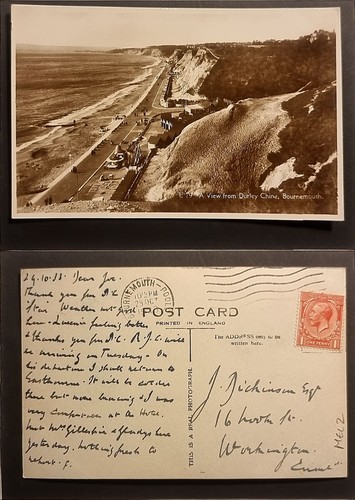 E 79 A View from Durley Chine, Bournemouth.
29.10.33. Dear Joe.
Thank you for P.C.
Weather not good
here. Queenie feeling better
& thanks you for P.C. R.J.C. will
be arriving on Tuesday. On
his departure I shall return to
Eastbourne. It will be colder
there but more bracing. I was
very comfortable at the Hotel.
Met Mrs Gillespie & Gladys here
yesterday. Nothing fresh to
report. J.
BOURNEMOUTH-POOLE
10.15 PM
29 OCT
POST CARD
PRINTED IN ENGLAND
The ADDRESS only to be
written here.
THIS IS A REAL PHOTOGRAPH.
1 ONE PENNY 1
J. Dickinson Esq
16 Nook St.
Workington.
Cumb
MEL 2